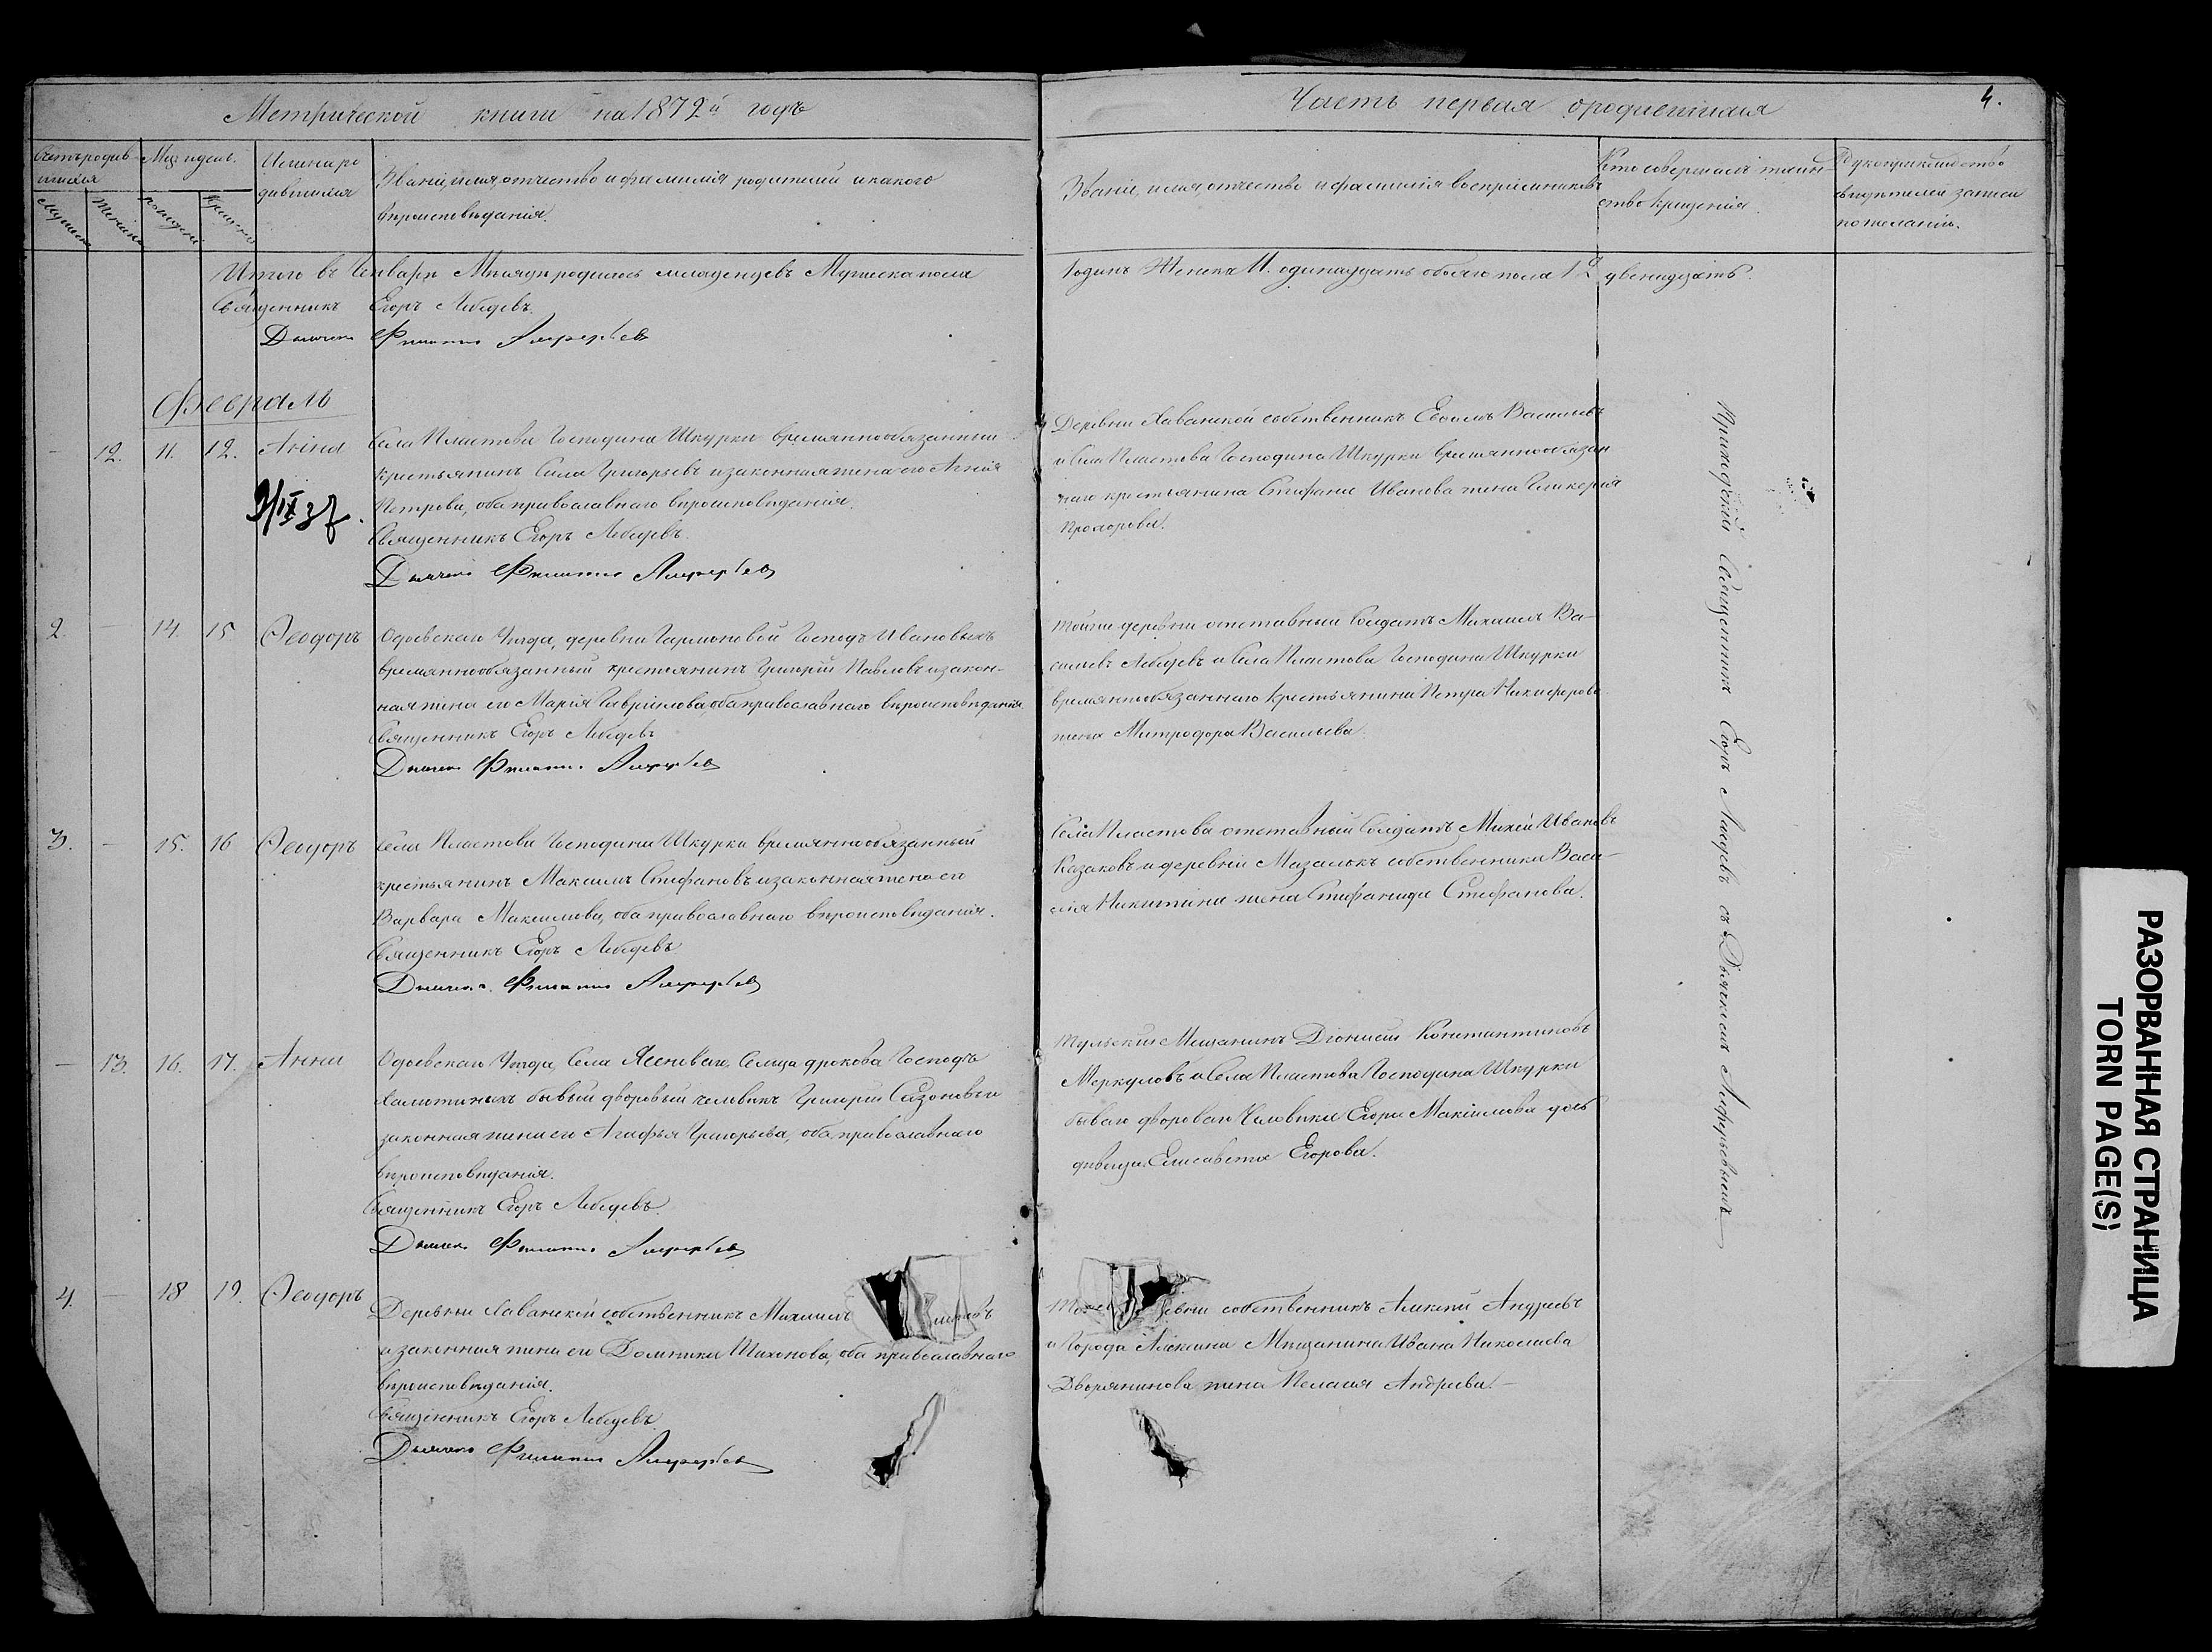 Метрической книги на 1872й годъ
Часть первая ородившихся
4.
Счетъ родив-
шихся
Мужеска
Женска
Мѣс. и день.
рожденія
Крещенія
Имена ро
дившихся
Званіе, имя, отчество и фамилія родителей и какого
вѣроисповѣданія.
Званіе, имя, отчество и фамилія воспріемниковъ
Кто совершалъ таин-
ство крещенія.
Рукоприкладство
свидѣтелей записи
по желанію.
Итого въ Генварѣ Мѣсяцѣ родилось младенцевъ Мужеска пола
1 одинъ Женска 11. одинадцать обоего пола 12 двенадцать.
Священникъ Егоръ Лебедевъ.
Дьячекъ Филиппъ Алферьевъ
Февраль
- 12. 11. 12. Анна
9/IX 37.
Села Пластова Господина Шкурки временнообязанный
крестьянинъ Сила Григорьевъ и законная жена его
Петрова, оба православнаго вѣроисповѣданія.
Священникъ Егоръ Лебедевъ.
Дьячекъ Филиппъ Алферьевъ
Деревни Хаванской собственникъ Васильевъ
и Села Пластова Господина Шкурки временнообязан
наго крестьянина Стефана Иванова жена Гликерія
Прохорова.
2. - 14. 15. Ѳеодоръ
Одоевскаго Уѣзда, деревни Гармоновой Господъ Ивановыхъ
временнообязанный крестьянинъ Григорій Павловъ и закон-
ная жена его Марія Гавріилова, оба православнаго вѣроисповѣданія
Священникъ Егоръ Лебедевъ
Дьячекъ Филиппъ Алферьевъ
Тойже деревни отставный Солдатъ Михаилъ Ва-
сильевъ Лебедевъ и Села Пластова Господина Шкурки
временнообязаннаго крестьянина Петра Никифорова
жена Митродора Васильева.
3. - 15. 16. Ѳеодоръ
Села Пластова Господина Шкурки временнообязанный
крестьянинъ Максимъ Стефановъ и законная жена его
Варвара Максимова, оба православнаго вѣроисповѣданія.
Священникъ Егоръ Лебедевъ
Дьячекъ Филиппъ Алферьевъ
Села Пластова отставный Солдатъ Михей Ивановъ
Казаковъ и деревни Мазалокъ собственника Васи-
лія Никитина жена Стефанида Стефанова.
- 13. 16. 17. Анна
Одоевскаго Уѣзда, Села Ясеноваго, Сельца дрокова Господъ
бывый дворовый человѣкъ Григорій Сазоновъ и
законная жена его Агафья Григорьева, оба православнаго
вѣроисповѣданія.
Священникъ Егоръ Лебедевъ.
Дьячекъ Филиппъ Алферьевъ
Тульскій Мещанинъ Діонисій Константиновъ
Меркуловъ и Села Пластова Господина Шкурки
бываго двороваго Человѣка Егора Максимова дочь
дѣвица Елисавета Егорова.
4. - 18. 19. Ѳеодоръ
Деревни Хаванской собственникъ Михаилъ
и законная жена его Домника Тихонова, оба православнаго
вѣроисповѣданія.
Священникъ Егоръ Лебедевъ.
Дьячекъ Филиппъ Алферьевъ
собственникъ Алексѣй Андреевъ
и Города Алексина Мѣщанина Ивана Николаева
Дворянинова жена Пелагія Андреева.
Приходскій Священникъ Егоръ Лебедевъ съ Дьячкомъ Алферьевымъ
РАЗОРВАННАЯ СТРАНИЦА
TORN PAGE(S)